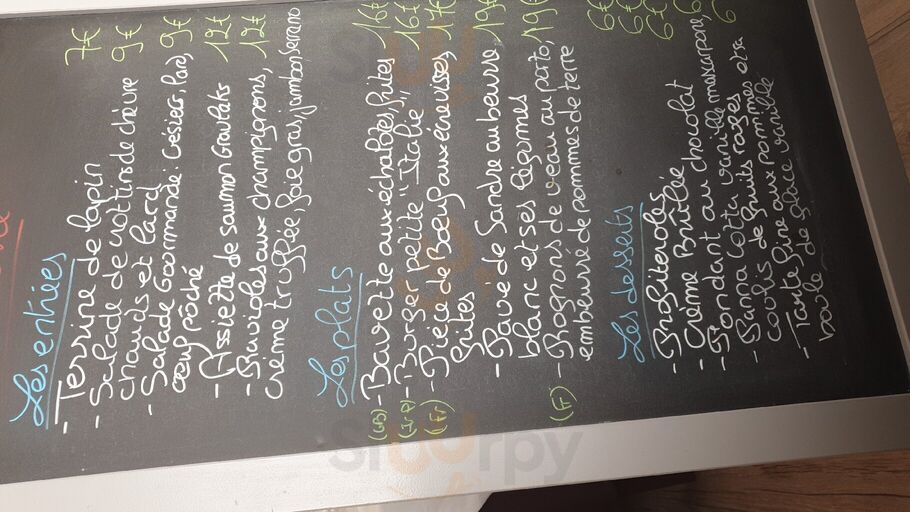 Les entrées
- Terrine de lapin 7€
- Salade de crottins de chèvre 9€
chauds et lard
- Salade Gourmande: Gésier, lard, 9€
œuf poché
- Assiette de saumon Gravlax 12€
- Ravioles aux champignons, 12€
crème truffée, foie gras, jambon serrano
Les plats
- Bavette aux échalotes, frites 16€
- Burger petite "Italie", 16€
(Fr) - Pièce de Boeuf aux écrevisses,
frites
- Pavé de Sandre au beurre 19€
blanc et ses légumes
(Fr) - Rognons de veau au porto, 19€
embeurré de pommes de terre
Les desserts
- Profiteroles 6€
- Crème Brûlée 6€
- Fondant au chocolat 6€
- Panna Cotta vanille mascarpone,
coulis de fruits rouges
- Tarte fine aux pommes et sa 6
boule de glace vanille
Sluurpy